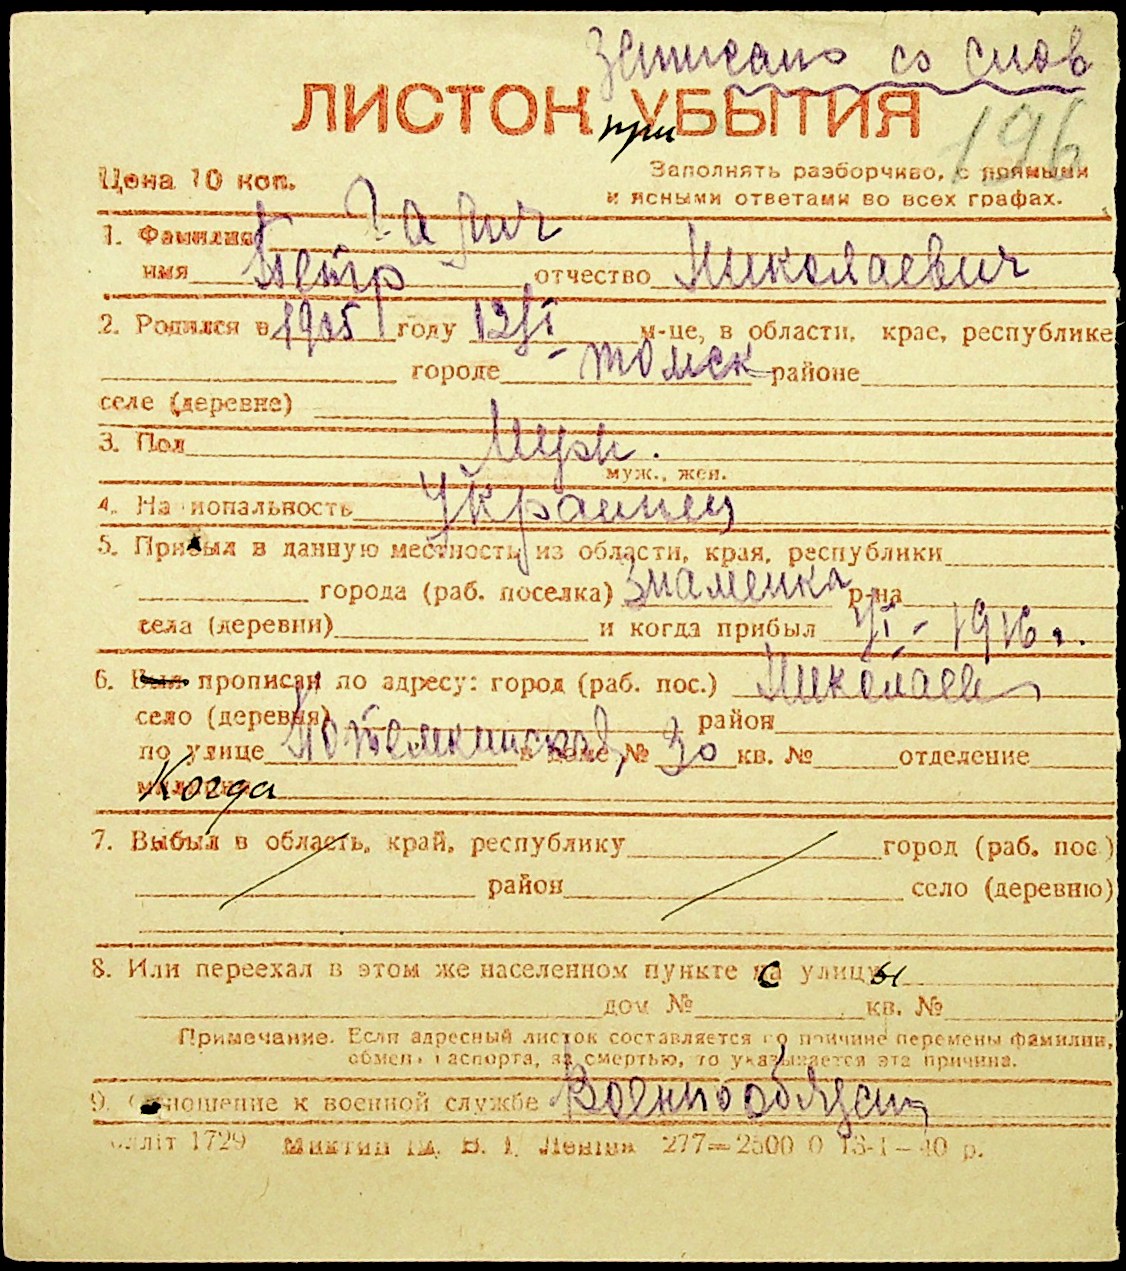 Записано со слов
ЛИСТОК УБЫТИЯ
при
196
Цена 10 коп.
Заполнять разборчиво, с прямыми
и ясными ответами во всех графах.
1. Фамилия Галич
имя Петр отчество Николаевич
2. Родился в 1905 году 12/VI м-це, в области, крае, республике
городе - Томск районе
селе (деревне)
3. Пол Муж.
муж., жен.
4. Национальность Украинец
5. Прибыл в данную местность из области, края, республики
города (раб. поселка) Знаменка р-на
села (деревни) и когда прибыл VI - 1916 г.
6. Был прописан по адресу: город (раб. пос.) Николаев
село (деревня) район
по улице Потемкинская, в доме № 30 кв. № отделение
милиции
Когда
7. Выбыл в область, край, республику город (раб. пос.)
район село (деревню)
8. Или переехал в этом же населенном пункте с улицы
дом № кв. №
Примечание. Если адресный листок составляется по причине перемены фамилии,
обмена паспорта, за смертью, то указывается эта причина.
9. Отношение к военной службе Военнообязан
1729 Ленина 277—2500 0 13-1—40 р.